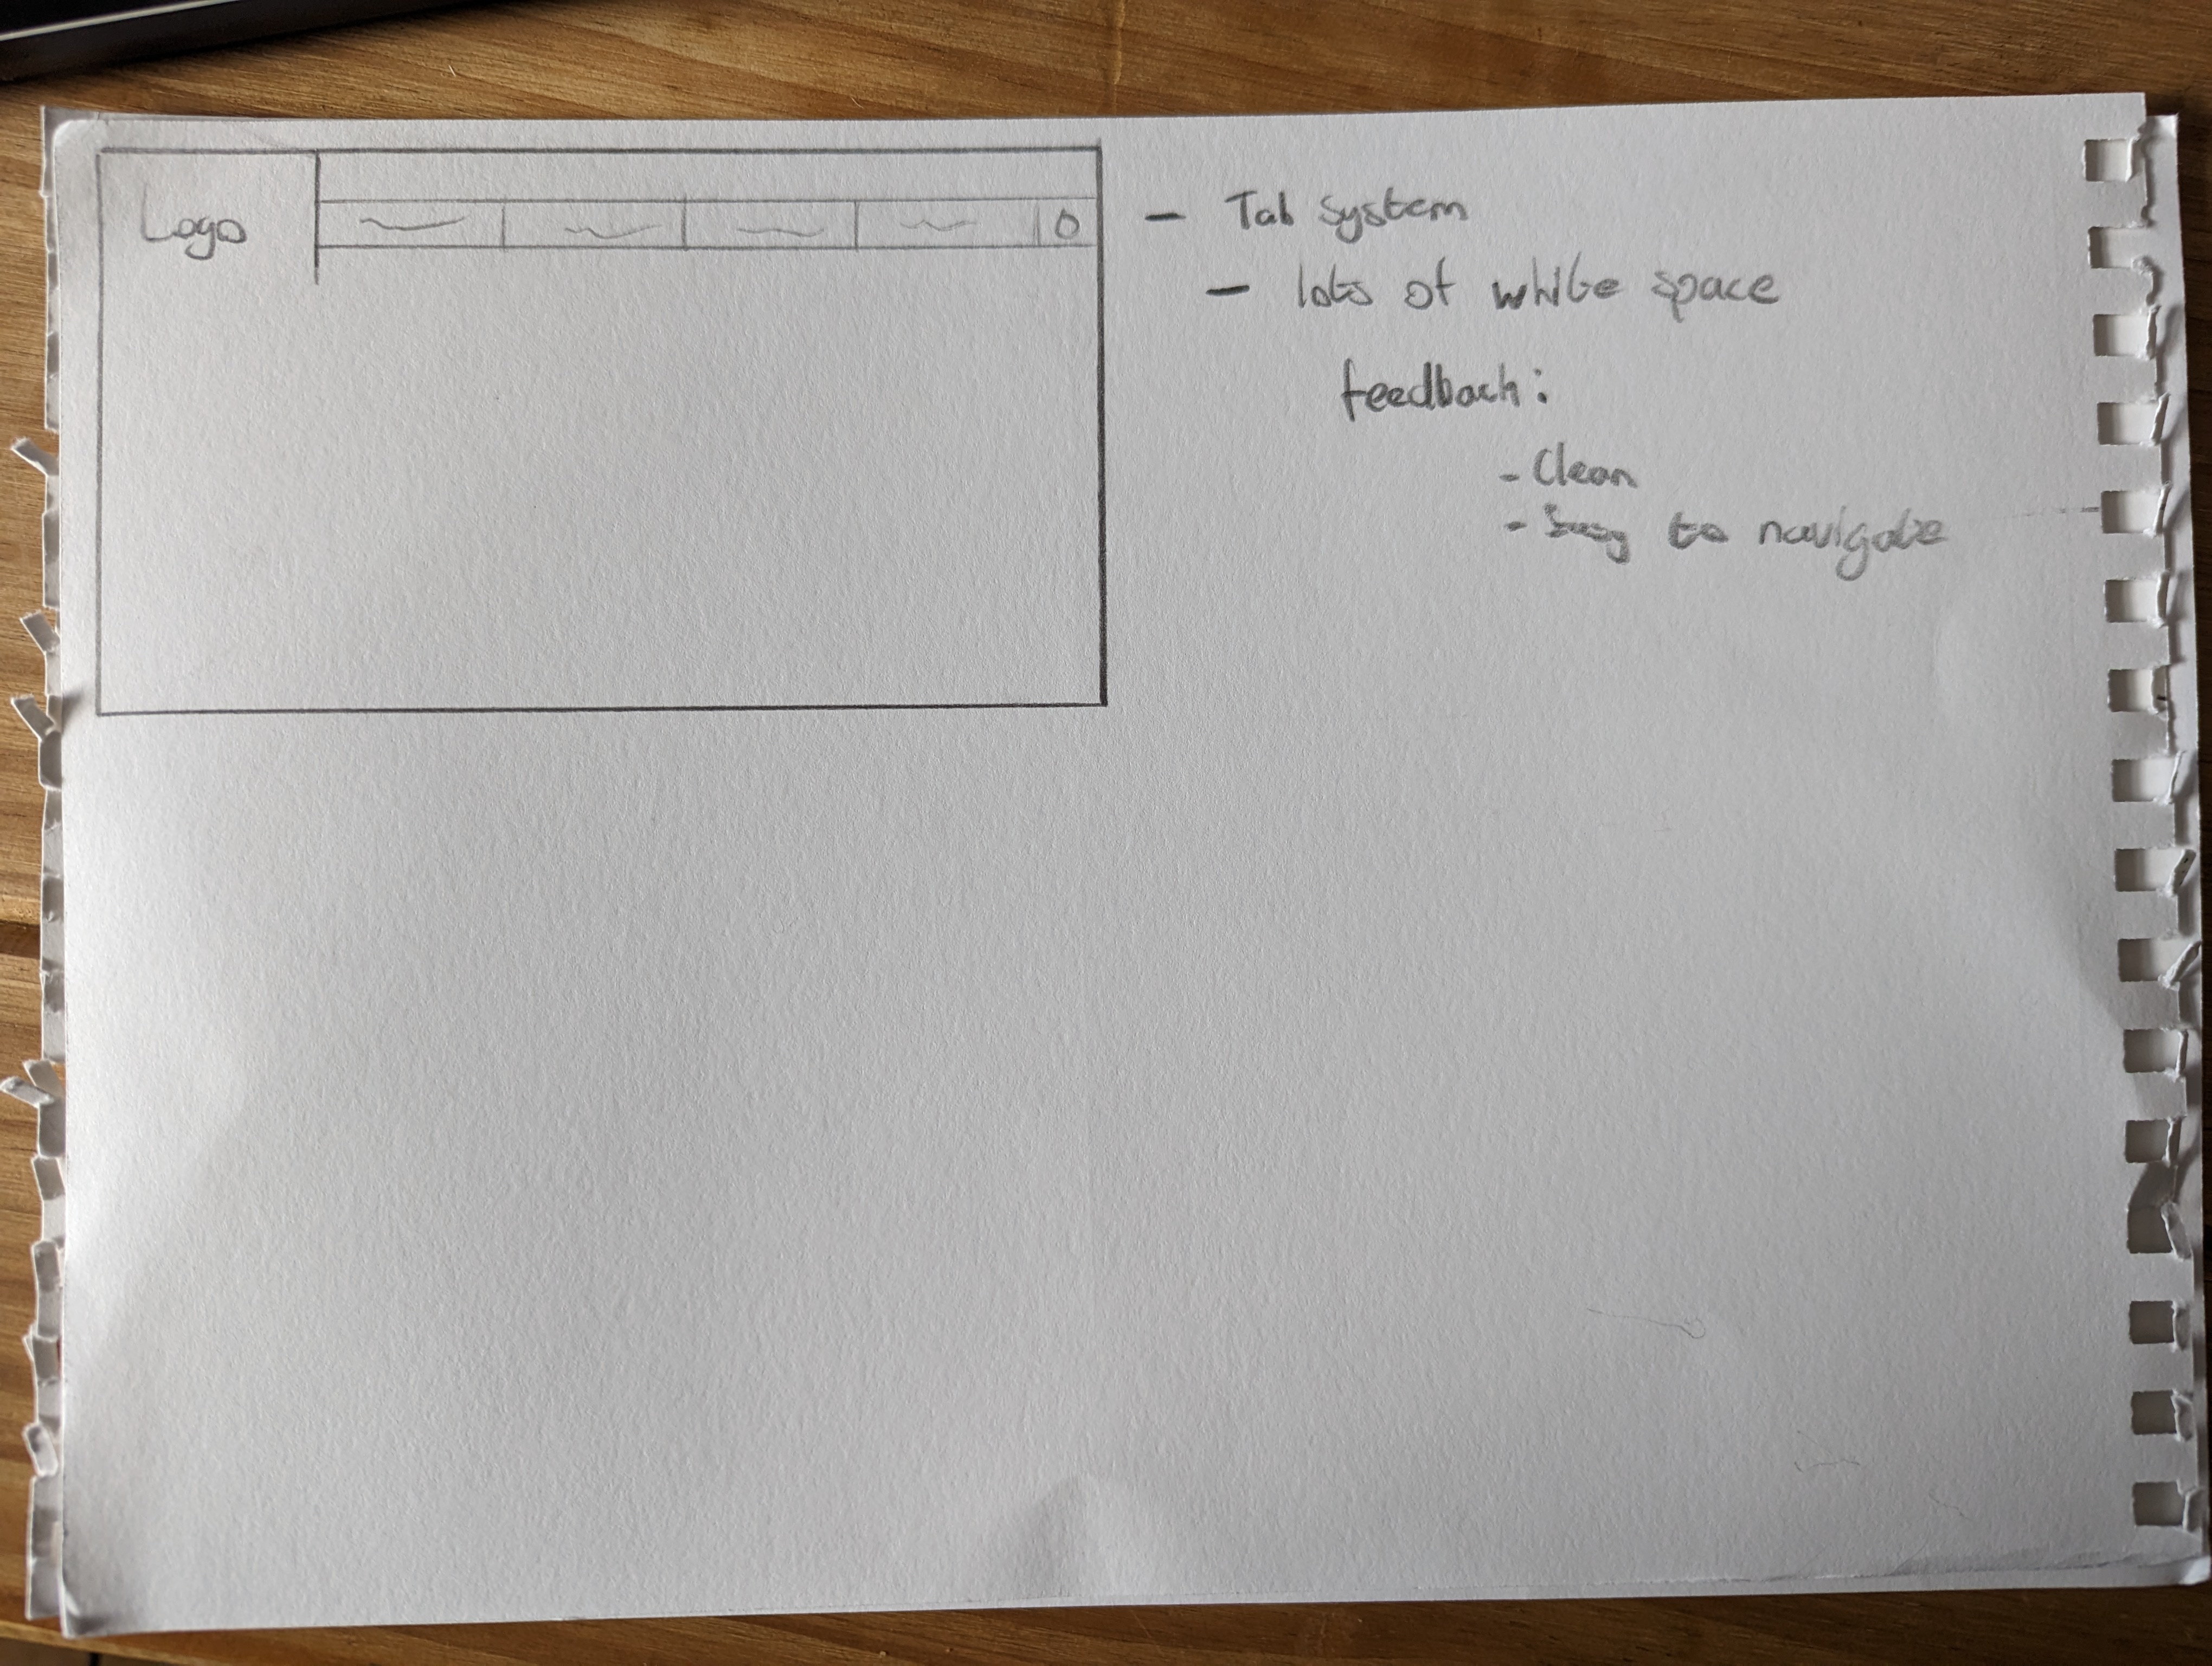 Logo
O
- Tab system
- lots of white space
feedback:
- Clean
- Easy to navigate